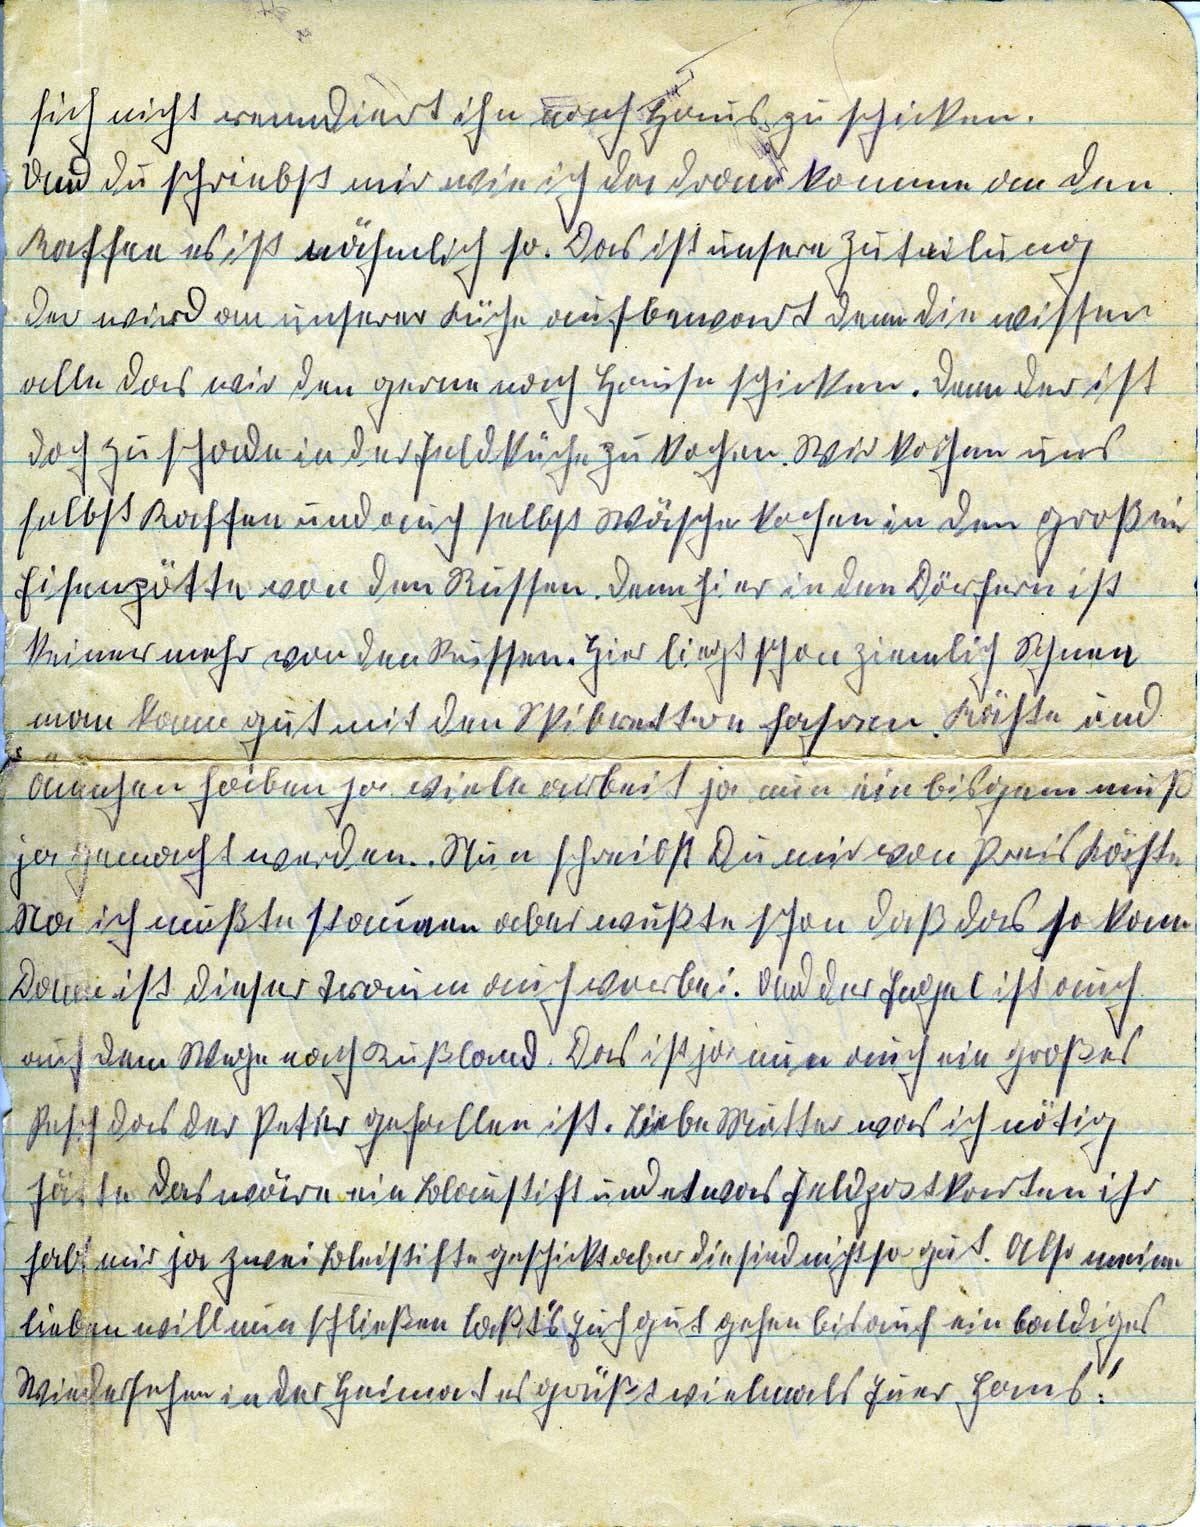 sich nicht renndiert ihn nach Haus zu schicken.
Und du schriebst mir wie ich da dran komme an den
Kaffee es ist nähmlich so. Das ist unsere Zuteilung
der wird an unserer Küche aufbewart denn die wissen
alle das wir den gerne nach Hause schicken. Denn der ist
doch zu schade in der Feldküche zu kochen. Wir kochen uns
selbst Kaffee und auch selbst Wäsche kochen in den großen
Eisenpötte von den Russen. Denn hier in den Dörfern ist
keiner mehr von den Russen. Hier liegt schon ziemlich Schnee
man kann gut mit den Skibretter fahren. Käthe und
Ännchen haben ja viele arbeit ja nun ein bischen muß
ja gemacht werden. Nun schreibst Du mir von Preis Käthe
Na ich mußte staunen aber wußte schon daß das so kam
Dann ist dieser Traum auch vorbei. Und der Engel ist auch
auf dem Wege nach Rußland. Das ist ja nun auch ein großes
Pech das der Peter gefallen ist. Liebe Mutter was ich nötig
hätte das wäre ein Blaustift und etwas Feldpostkarten ihr
habt mir ja zwei Bleistifte geschickt aber die sind nicht so gut. Also meine
lieben will nun schließen laßt's Euch gut gehen bis auf ein baldiges
Wiedersehen in der Heimat es grüßt vielmals Euer Hans!